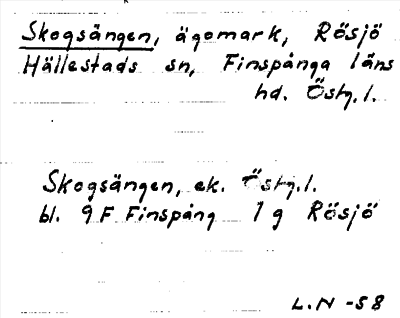 Skogsängen, ägomark, Rösjö
Hällestads sn, Finspånga läns
hd. Östg. l.
Skogsängen, ek. Östg. l.
bl. 9F Finspång 1g Rösjö
L.N -58